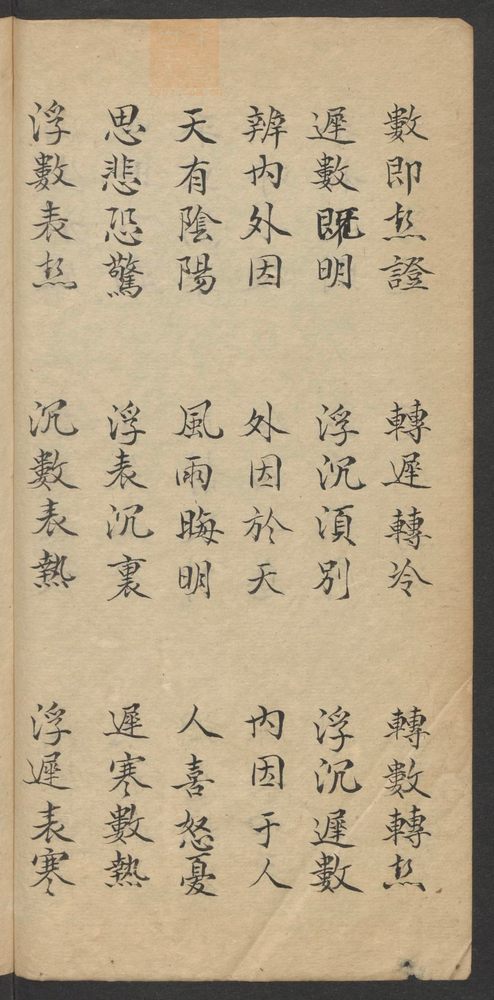 數即𤍠證　轉遲轉冷　轉數轉𤍠
遲數既明　浮沉須別　浮沉遲數
辨内外因　外因於天　内因于人
天有陰陽　風雨晦明　人喜怒憂
思悲恐驚　浮表沉裏　遲寒數熱
浮數表𤍠　沉數表熱　浮遲表寒